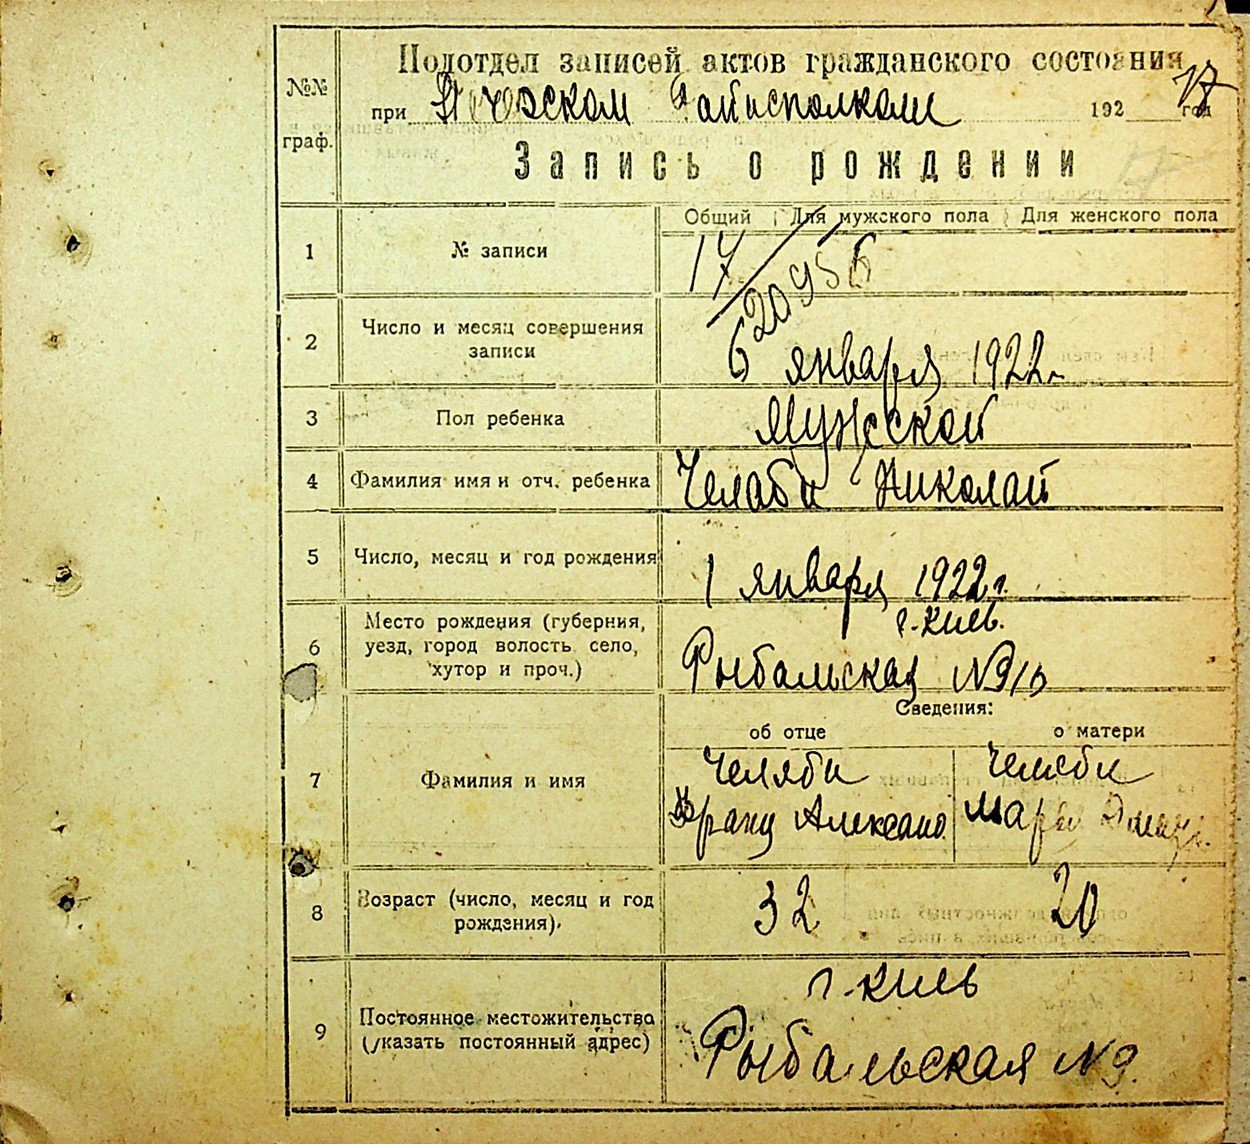 Подотдел записей актов гражданского состояния
при Печерском Райисполкоме 192 год
17
№№ граф.
Запись о рождении
Общий Для мужского пола Для женского пола
1 № записи 17
620956
2 Число и месяц совершения
записи
6 января 1922 г.
3 Пол ребенка Мужской
4 Фамилия имя и отч. ребенка Челаби Николай
5 Число, месяц и год рождения 1 января 1922 г.
6 Место рождения (губерния,
уезд, город волость село,
хутор и проч.)
г. Киев.
Рыбальская №9/10
Сведения:
об отце о матери
7 Фамилия и имя
Челяби Челеби
Франц Александ Мария
8 Возраст (число, месяц и год
рождения).
32 20
9 Постоянное местожительство
(указать постоянный адрес)
г. Киев
Рыбальская №9.